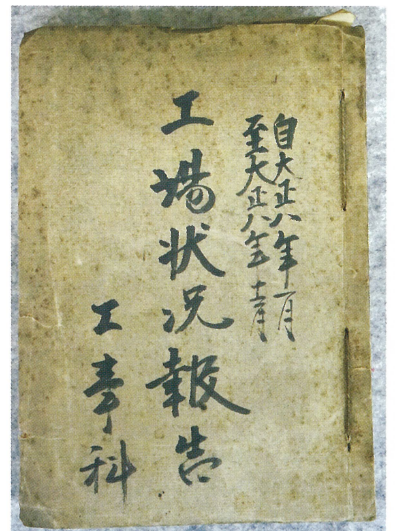 自大正八年一月
至大正八年十二月
工場状况報告
工事科